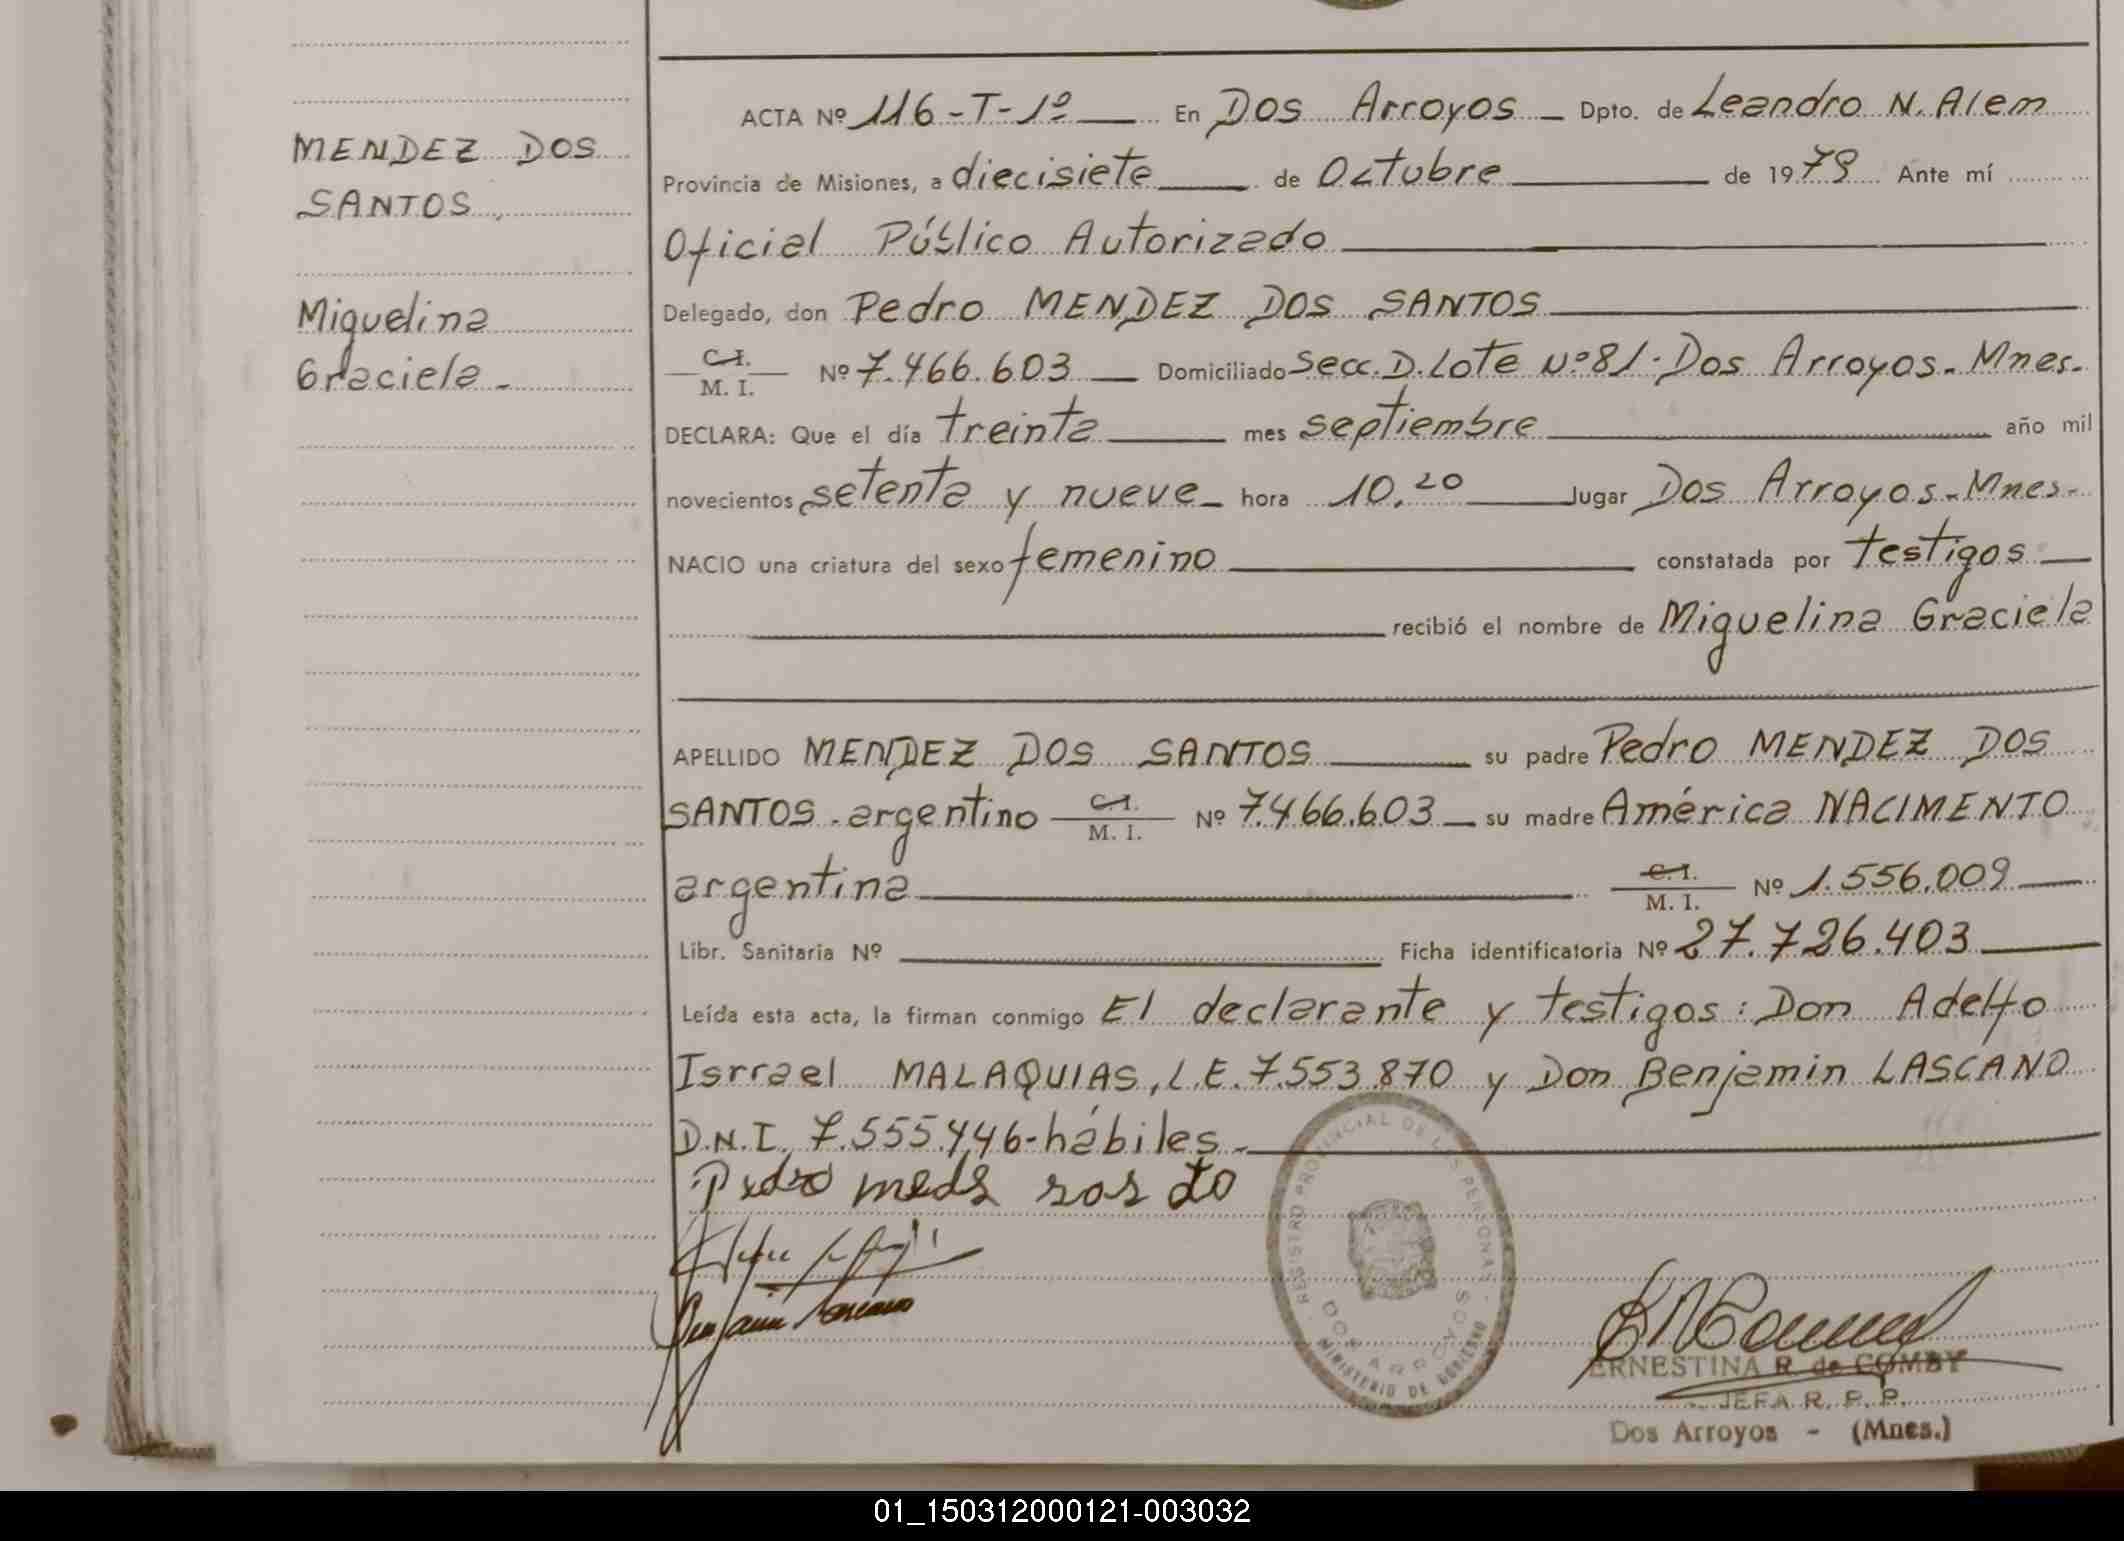 MENDEZ DOS
SANTOS,
Miguelina
Graciela -
ACTA Nº 116-T-1º En Dos Arroyos Dpto. de Leandro N. Alem
Provincia de Misiones, a diecisiete de Octubre de 1979 Ante mí
Oficial Público Autorizado
Delegado, don Pedro MENDEZ DOS SANTOS
C.I. M. I. Nº 7.466.603 Domiciliado Secc. D. Lote Nº 81. Dos Arroyos. Mnes.
DECLARA: Que el día treinta mes septiembre año mil
novecientos setenta y nueve hora 10,20 lugar Dos Arroyos-Mnes-
NACIO una criatura del sexo femenino constatada por testigos
recibió el nombre de Miguelina Graciela
APELLIDO MENDEZ DOS SANTOS su padre Pedro MENDEZ DOS
SANTOS. argentino C.I. M. I. Nº 7.466.603 su madre América NACIMENTO
argentina C.I. M. I. Nº 1.556.009
Libr. Sanitaria Nº Ficha identificatoria Nº 27.726.403
Leída esta acta, la firman conmigo El declarante y testigos: Don Adelfo
Isrrael MALAQUIAS, L.E. 7.553.870 y Don Benjamin LASCANO
D.N.I. 7.555.446-hábiles.-
Pedro
Benjamin Lascano
REGISTRO PROVINCIAL DE LAS PERSONAS
DOS ARROYOS
MINISTERIO DE GOBIERNO
ERNESTINA R. de COMBY
JEFA R. P. P.
Dos Arroyos - (Mnes.)
01_150312000121-003032